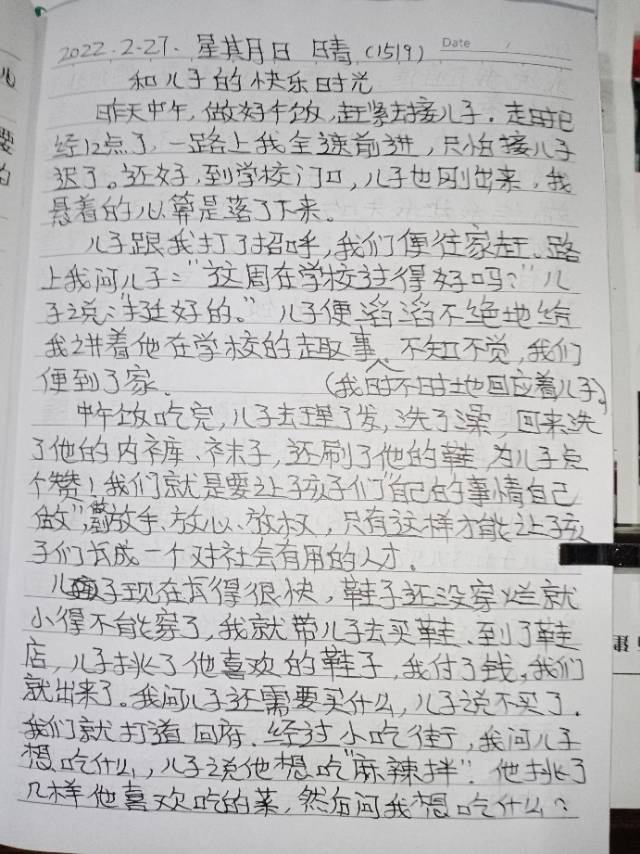 2022.2.27. 星期日 晴 (1519) Date
和儿子的快乐时光
昨天中午,做好午饭,赶紧去接儿子.走时已
经12点了,一路上我全速前进,只怕接儿子
迟了。还好,到学校门口,儿子也刚出来,我
悬着的心算是落了下来.
儿子跟我打了招呼,我们便往家赶、路
上我问儿子:"这周在学校过得好吗?"儿
子说:"挺好的."儿子便滔滔不绝地给
我讲着他在学校的趣事、不知不觉,我们
便到了家. (我时不时地回应着儿子)
中午饭吃完,儿子去理了发,洗了澡,回来洗
了他的内裤、袜子,还刷了他的鞋,为儿子点
个赞!我们就是要让孩子们"自己的事情自己
做",放手、放心、放权,只有这样才能让孩
子们长成一个对社会有用的人才.
儿子现在长得很快,鞋子还没穿烂就
小得不能穿了,我就带儿子去买鞋、到了鞋
店,儿子挑了他喜欢的鞋子,我付了钱,我们
就出来了。我问儿子还需要买什么,儿子说不买了.
我们就打道回府、经过小吃街,我问儿子
想吃什么,儿子说他想吃"麻辣拌".他挑了
几样他喜欢吃的菜,然后问我想吃什么?